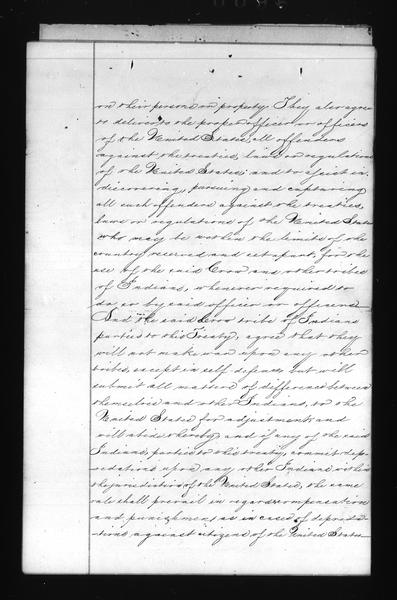 on their person or property. They also agree
to deliver to the proper officer or officers
of the United States, all offenders
against the treaties, laws or regulations
of the United States, and to assist in
discovering, pursuing and capturing
all such offenders against the treaties,
laws or regulations of the United States
who may be within the limits of the
country reserved and set apart, for the
use of the said Crow and other tribes
of Indians, whenever required to
do so by said officer or officers
And the said Crow tribe of Indians
parties to this Treaty, agree that they
will not make war upon any other
tribes, except in self defense but will
submit all matters of difference between
themselves and other Indians, to the
United States for adjustment and
will abide thereby, and if any of the said
Indians, parties to this treaty, commit dep-
redations upon any other Indians within
the jurisdiction of the United States, the same
rule shall prevail in regard to compensation
and punishment as in cases of depreda-
tions against citizens of the United States